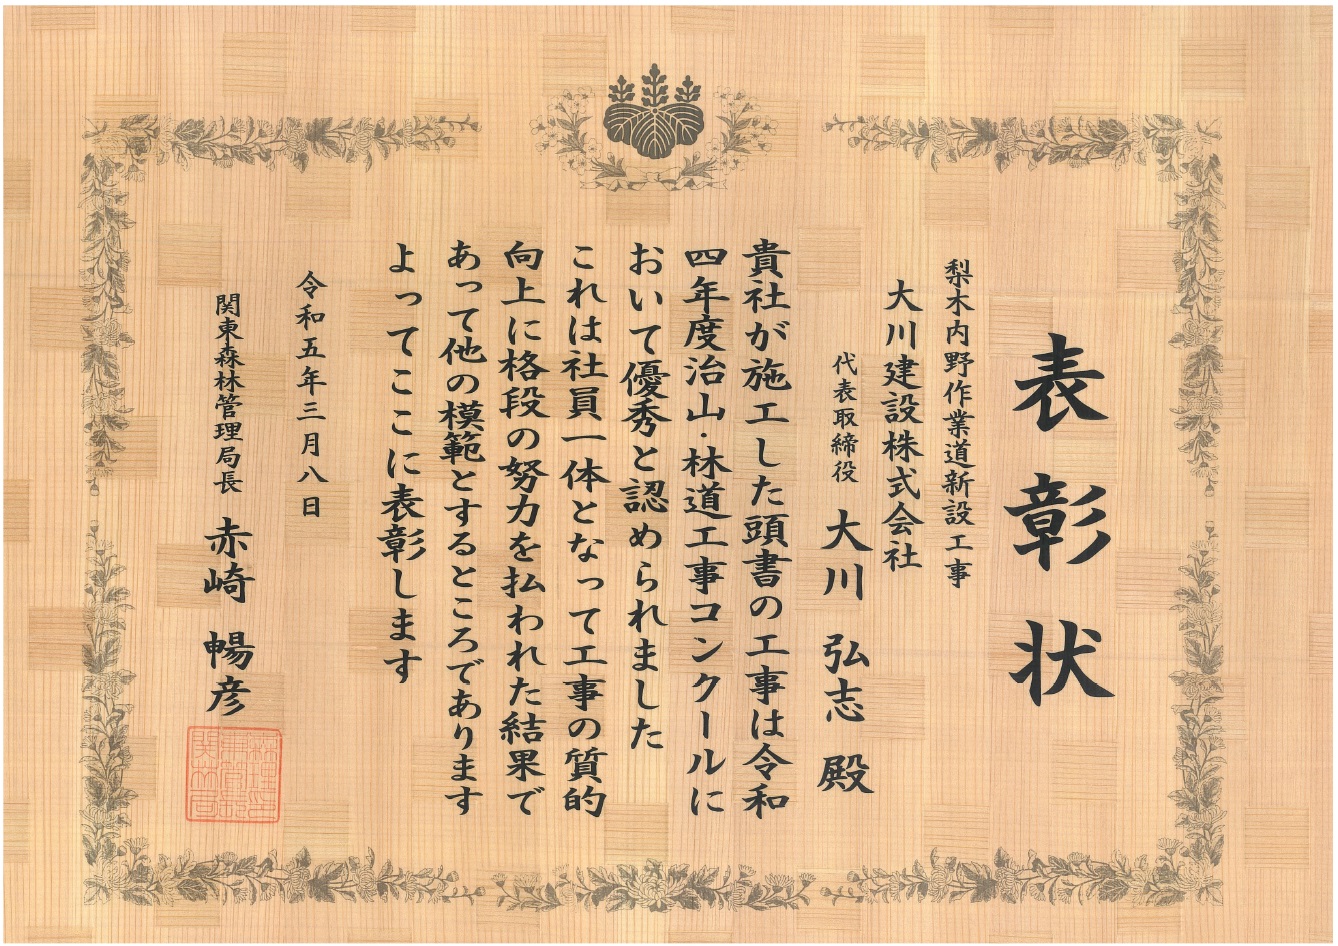 表彰状
梨木内野作業道新設工事
大川建設株式会社
代表取締役 大川 弘志 殿
貴社が施工した頭書の工事は令和
四年度治山・林道工事コンクールに
おいて優秀と認められました
これは社員一体となって工事の質的
向上に格段の努力を払われた結果で
あって他の模範とするところであります
よってここに表彰します
令和五年三月八日
関東森林管理局長 赤崎 暢彦